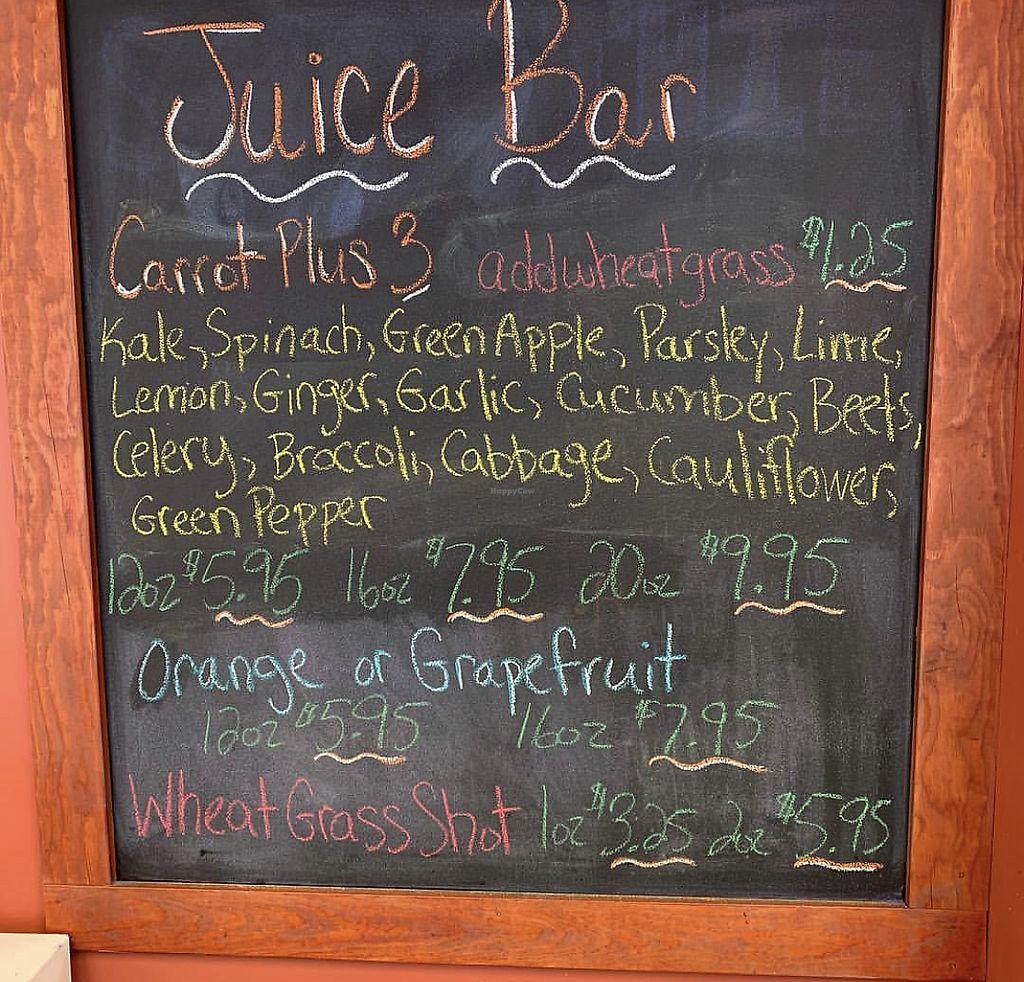 Juice Bar
Carrot Plus 3 add wheatgrass $1.25
Kale, Spinach, Green Apple, Parsley, Lime,
Lemon, Ginger, Garlic, Cucumber, Beets,
Celery, Broccoli, Cabbage, Cauliflower,
HappyCow
Green Pepper
12oz $5.95 16oz $7.95 20oz $9.95
Orange or Grapefruit
12oz $5.95 16oz $7.95
Wheat Grass Shot 1oz $3.25 2oz $5.95